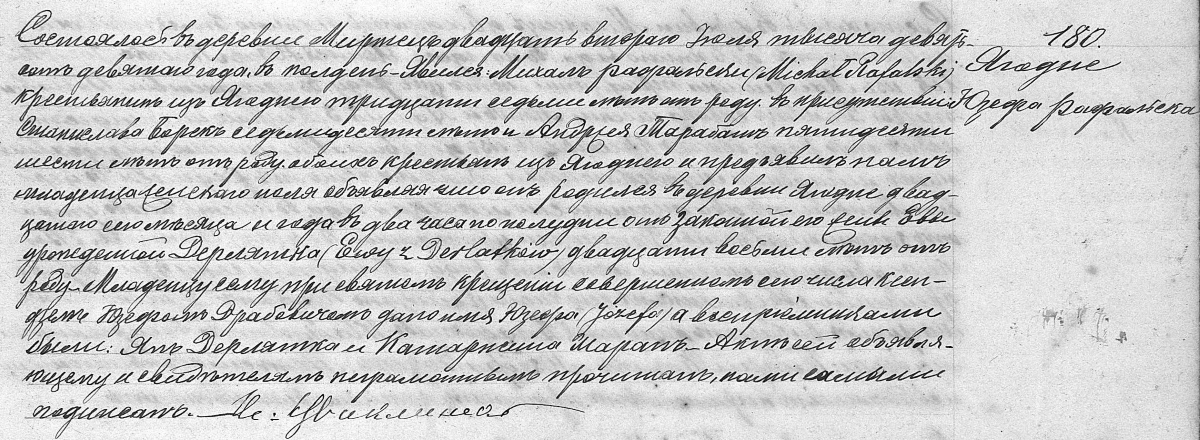 Состоялось въ деревни Миртецъ двадцать втораго Июля тысяча девять-
сотъ девятаго года, въ полдень. Явился: Михалъ Рафальски (Michał Rafalski)
крестьянинъ изъ Ягоднего тридцати седьми лѣтъ отъ роду въ присутствіи
Станислава Борекъ седьмидесяти лѣтъ и Андрея Тарабашъ пятидесяти
шести лѣтъ отъ роду обоихъ крестьянъ изъ Ягоднего и предъявилъ намъ
младенца женскаго пола объявляя что онъ родился въ деревни Ягодне двад-
цатаго сего мѣсяца и года въ два часа по полудни отъ законной его жены Евы
урожденной Дерлятка (Ewy z Derlatków) двадцати восьми лѣтъ отъ
роду. Младенцу сему при святомъ крещеніи совершенномъ сего числа ксен-
дземъ Юзефомъ Драбовичемъ дано имя Юзефа (Józefa) а воспріемниками
были: Янъ Дерлятка и Катаржина Марапъ. Актъ сей объявля-
ющему и свидѣтелямъ неграмотнымъ прочитанъ, нами самыми
подписанъ. Кс:
180.
Ягодне
Юзефа Рафальска